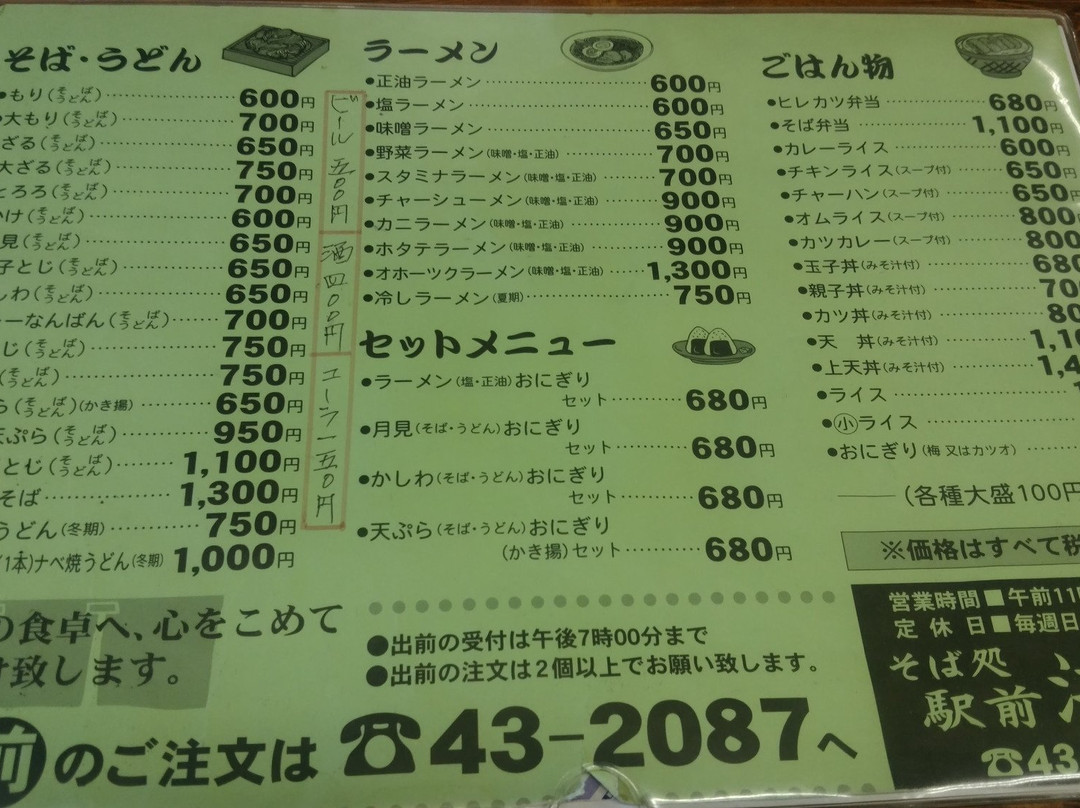 そば・うどん
もり(そば うどん) 600円
大もり(そば うどん) 700円
ざる(そば うどん) 650円
大ざる(そば うどん) 750円
とろろ(そば うどん) 700円
かけ(そば うどん) 600円
見(そば うどん) 650円
子とじ(そば うどん) 650円
しわ(そば うどん) 650円
ーなんばん(そば うどん) 700円
じ(そば うどん) 750円
(そば うどん) 750円
ら(そば うどん)(かき揚) 650円
天ぷら(そば うどん) 950円
とじ(そば うどん) 1,100円
そば 1,300円
うどん(冬期) 750円
(1本)ナベ焼うどん(冬期) 1,000円
ビール 五00円
酒 四00円
コーラ 一五0円
ラーメン
●正油ラーメン 600円
●塩ラーメン 600円
●味噌ラーメン 650円
●野菜ラーメン(味噌・塩・正油) 700円
●スタミナラーメン(味噌・塩・正油) 700円
●チャーシューメン(味噌・塩・正油) 900円
●カニラーメン(味噌・塩・正油) 900円
●ホタテラーメン(味噌・塩・正油) 900円
●オホーツクラーメン(味噌・塩・正油) 1,300円
●冷しラーメン(夏期) 750円
セットメニュー
●ラーメン(塩・正油)おにぎり
セット 680円
●月見(そば・うどん)おにぎり
セット 680円
●かしわ(そば・うどん)おにぎり
セット 680円
●天ぷら(そば・うどん)おにぎり
(かき揚)セット 680円
ごはん物
●ヒレカツ弁当 680円
●そば弁当 1,100円
●カレーライス 600円
●チキンライス(スープ付) 650円
●チャーハン(スープ付) 650
●オムライス(スープ付) 800
●カツカレー(スープ付) 800
●玉子丼(みそ汁付) 680
●親子丼(みそ汁付) 70
●カツ丼(みそ汁付) 80
●天 丼(みそ汁付) 1,10
●上天丼(みそ汁付) 1,4
●ライス
●㊙ライス
●おにぎり(梅 又はカツオ)
(各種大盛100円
※価格はすべて税
の食卓へ、心をこめて
け致します。
●出前の受付は午後7時00分まで
●出前の注文は2個以上でお願い致します。
前のご注文は ☎43-2087へ
営業時間■午前11
定休日■毎週日
そば処
駅前
☎43